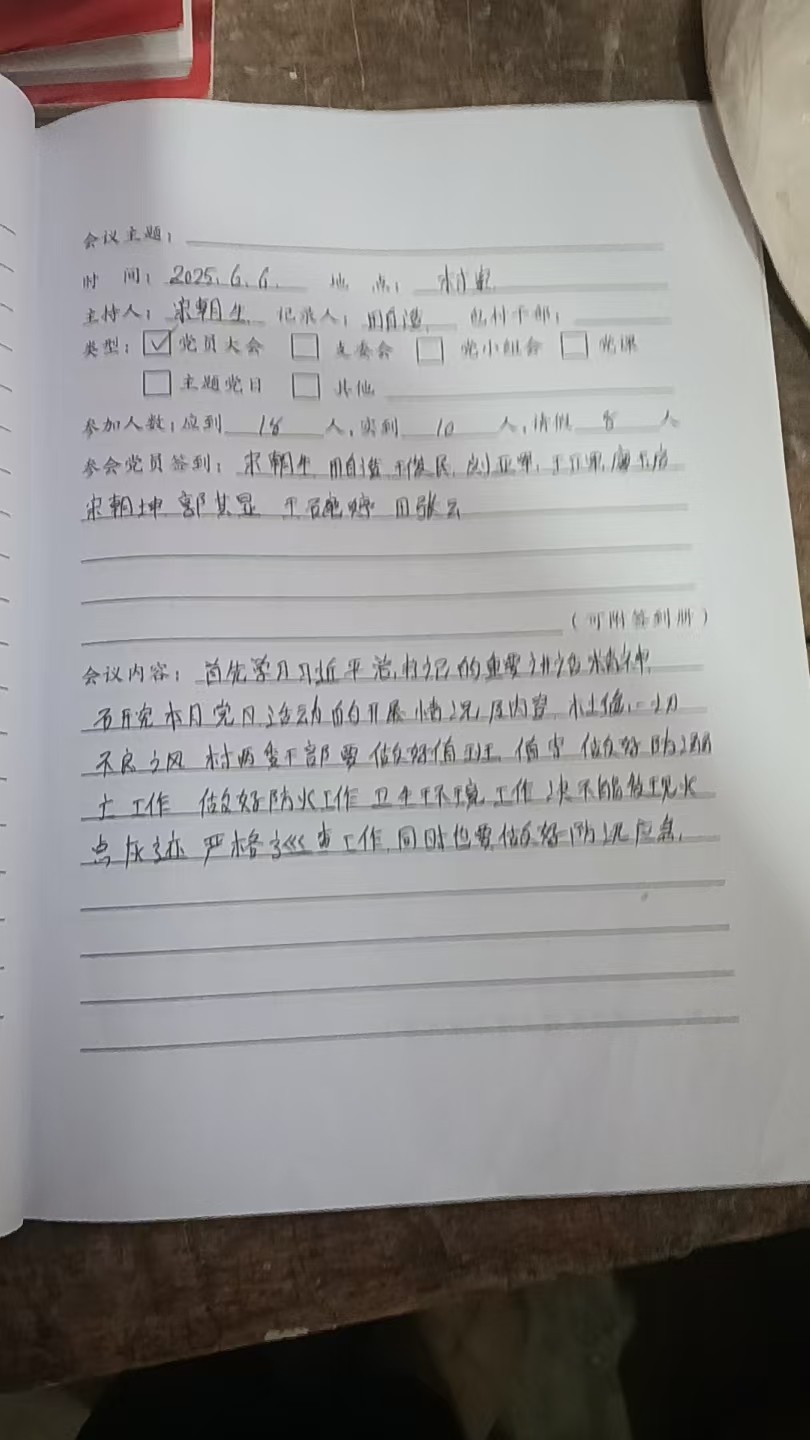 会议主题：
时 间：2025.6.6. 地 点： 村室
主持人：宋朝生 记录人： 包村干部：
类型：☑党员大会 □支委会 □党小组会 □党课
□主题党日 □其他
参加人数：应到 18 人，实到 10 人，请假 8 人
参会党员签到：宋朝生
宋朝坤 郭其显
（可附签到册）
会议内容：首先学习习近平总书记的重要讲话精神
研究本月党日活动的开展情况及内容 杜绝一切
不良之风 村两委干部要做好值班 值守 做好防溺
亡工作 做好防火工作 卫生环境工作 决不能做现火
点灰迹 严格巡查工作 同时也要做好防汛应急.